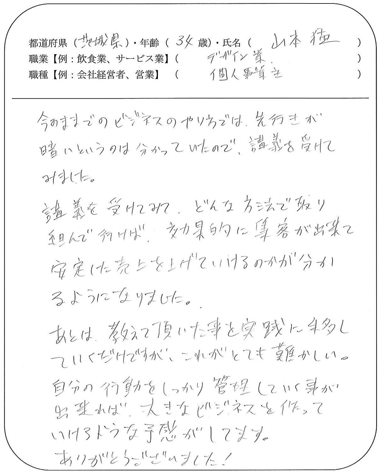 都道府県（茨城県）・年齢（34歳）・氏名（山本猛）
職業【例：飲食業、サービス業】（デザイン業）
職種【例：会社経営者、営業】（個人事業主）
今のままでのビジネスのやり方では、先行きが
暗いというのは分かっていたので、講義を受けて
みました。
講義を受けてみて、どんな方法で取り
組んで行けば、効果的に集客が出来て
安定した売上を上げていけるのかが分か
るようになりました。
あとは、教えて頂いた事を実践に移し
ていくだけですが、これがとても難かしい。
自分の行動をしっかり管理していく事が
出来れば、大きなビジネスを作って
いけるような予感がしてます。
ありがとうございました！